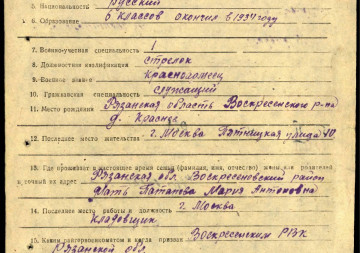 5. Национальность русский
6. Образование 6 классов окончил в 1934 году
7. Военно-учетная специальность 1
8. Должностная квалификация стрелок
9. Военное звание красноармеец
10. Гражданская специальность служащий
11. Место рождения Рязанская область Воскресенского р-на
д.
12. Последнее место жительства г. Москва Пятницкая улица
13. Где проживает в настоящее время семья (фамилия, имя, отчество) жены или родителей
и точный их адрес Рязанская обл. Воскресенский район
Мать Мария Антоновна
14. Последнее место работы и должность г. Москва
кладовщик
15. Каким райгорвоенкоматом и когда призван Воскресенским РВК
Рязанской обл.